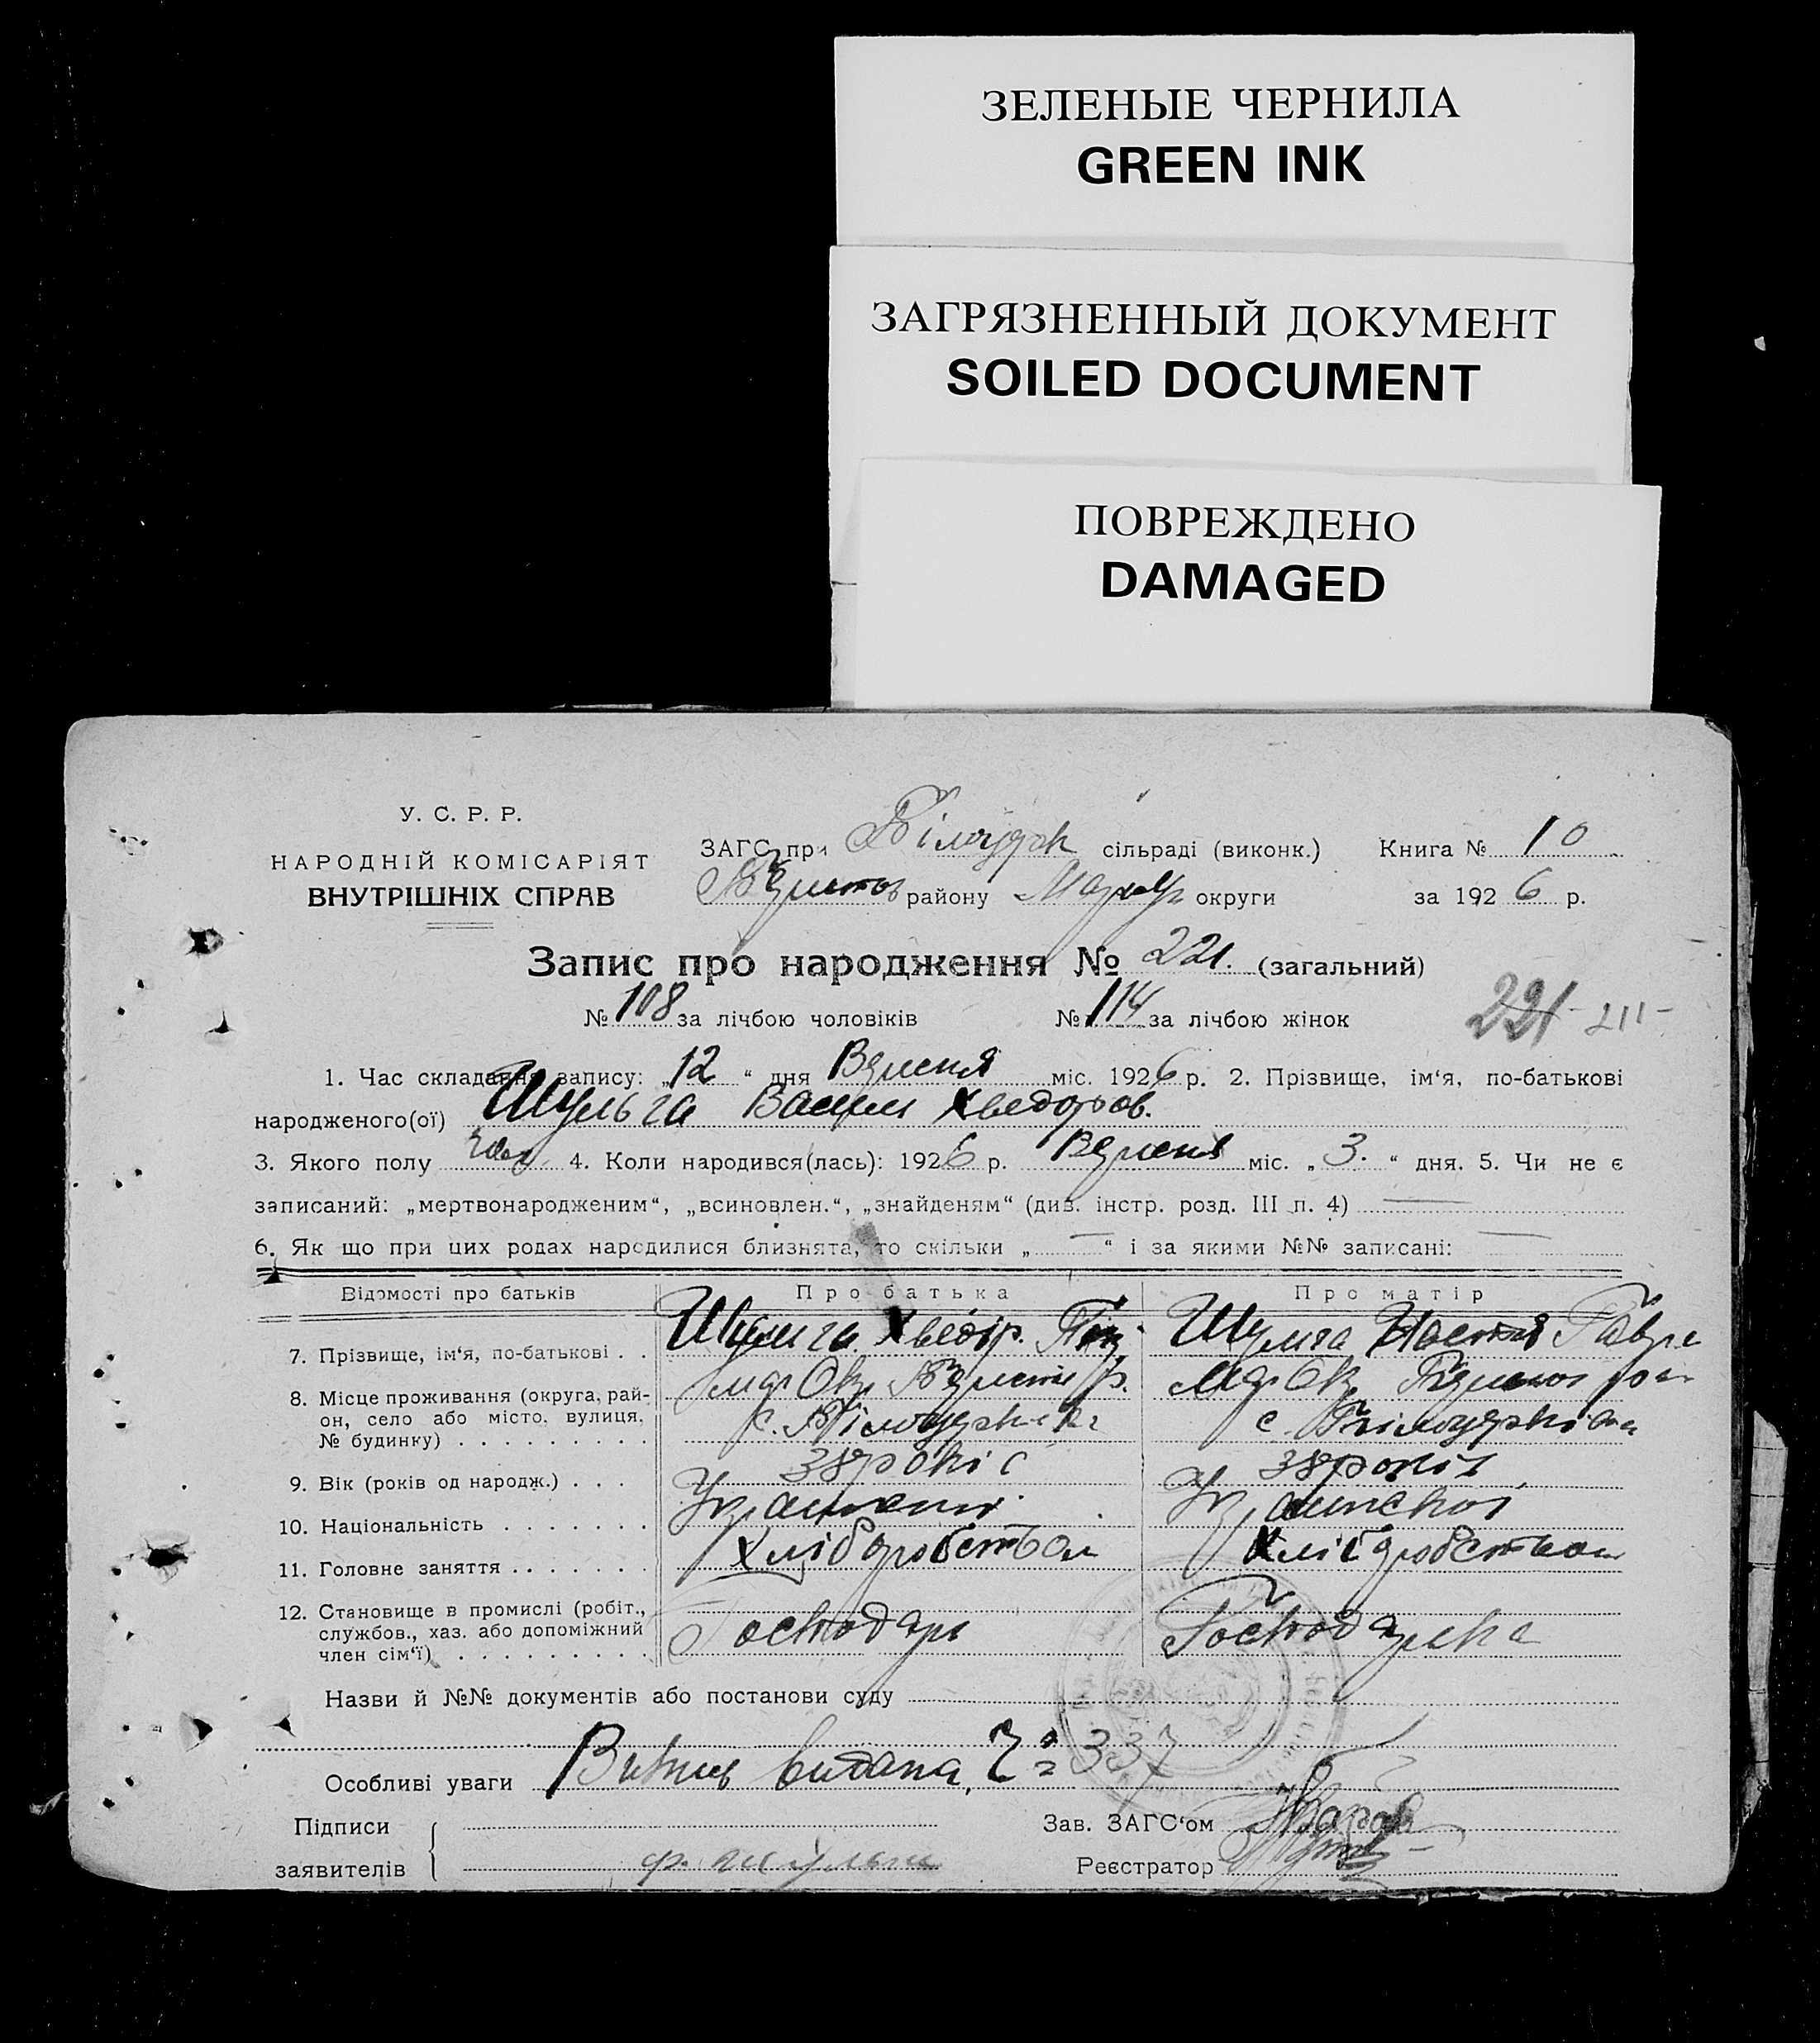 ЗЕЛЕНЫЕ ЧЕРНИЛА
GREEN INK
ЗАГРЯЗНЕННЫЙ ДОКУМЕНТ
SOILED DOCUMENT
ПОВРЕЖДЕНО
DAMAGED
У. С. Р. Р.
НАРОДНІЙ КОМІСАРІЯТ
ВНУТРІШНІХ СПРАВ
ЗАГС при сільраді (виконк.) Книга № 10
району округи за 1926 р.
Запис про народження № 221. (загальний)
№ 108 за лічбою чоловіків № 114 за лічбою жінок
221
1. Час складання запису: „12“ дня Вересня міс. 1926 р. 2. Прізвище, ім‘я, по-батькові
народженого(ої) Шульга Хведоров.
3. Якого полу чол. 4. Коли народився(лась): 1926 р. Вересня міс. „3.“ дня. 5. Чи не є
записаний: „мертвонародженим“, „всиновлен.“, „знайденям“ (див. інстр. розд. III п. 4)
6. Як що при цих родах народилися близнята, то скільки „—“ і за якими №№ записані: —
Відомості про батьків Про батька Про матір
7. Прізвище, ім‘я, по-батькові . . Шульга Хведір. Шульга Настя Гавр
8. Місце проживання (округа, рай-
он, село або місто, вулиця,
№ будинку) . . . . . . . . .
9. Вік (років од народж.) . . . 38 років 38 років
10. Національність . . . . . . .
11. Головне заняття . . . . . . . Хліборобством Хліборобством
12. Становище в промислі (робіт.,
службов., хаз. або допоміжний
член сім‘ї) . . . . . . . . . Господарь Господарка
Назви й №№ документів або постанови суду
Особливі уваги видана, 337
Підписи Зав. ЗАГС‘ом
заявителів Реєстратор